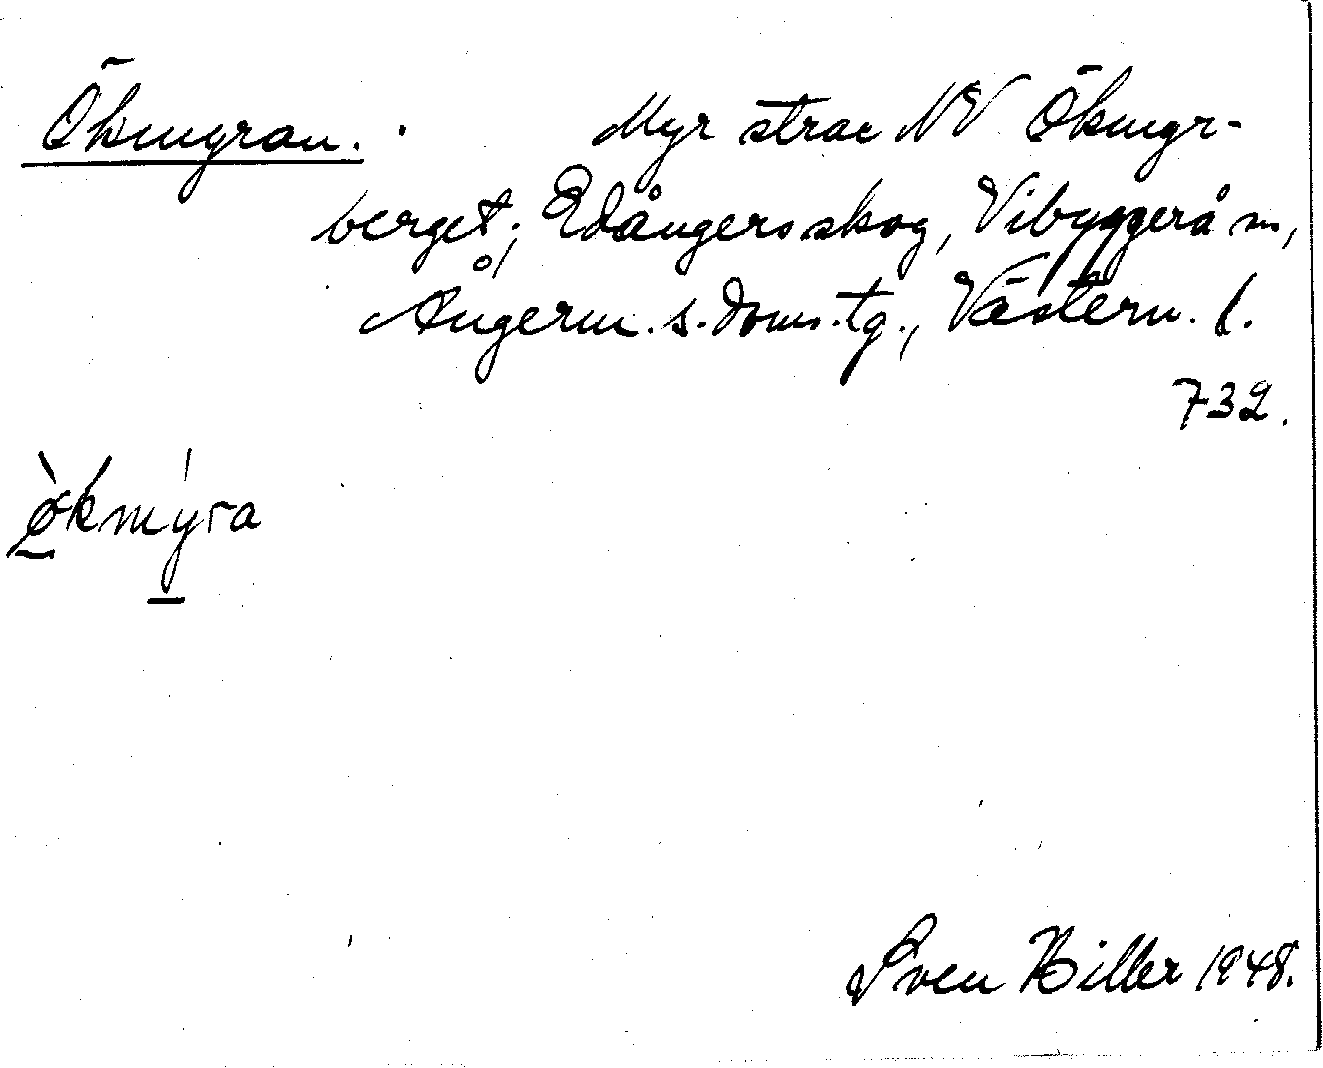 Ökmyran.
Myr strax NV Ökmyr-
berget; Edångersskog, Vibyggerå sn,
Ångerm. s. doms. tg., Västern. l.
732.
ø̀kmýra
Sven Hiller 1948.